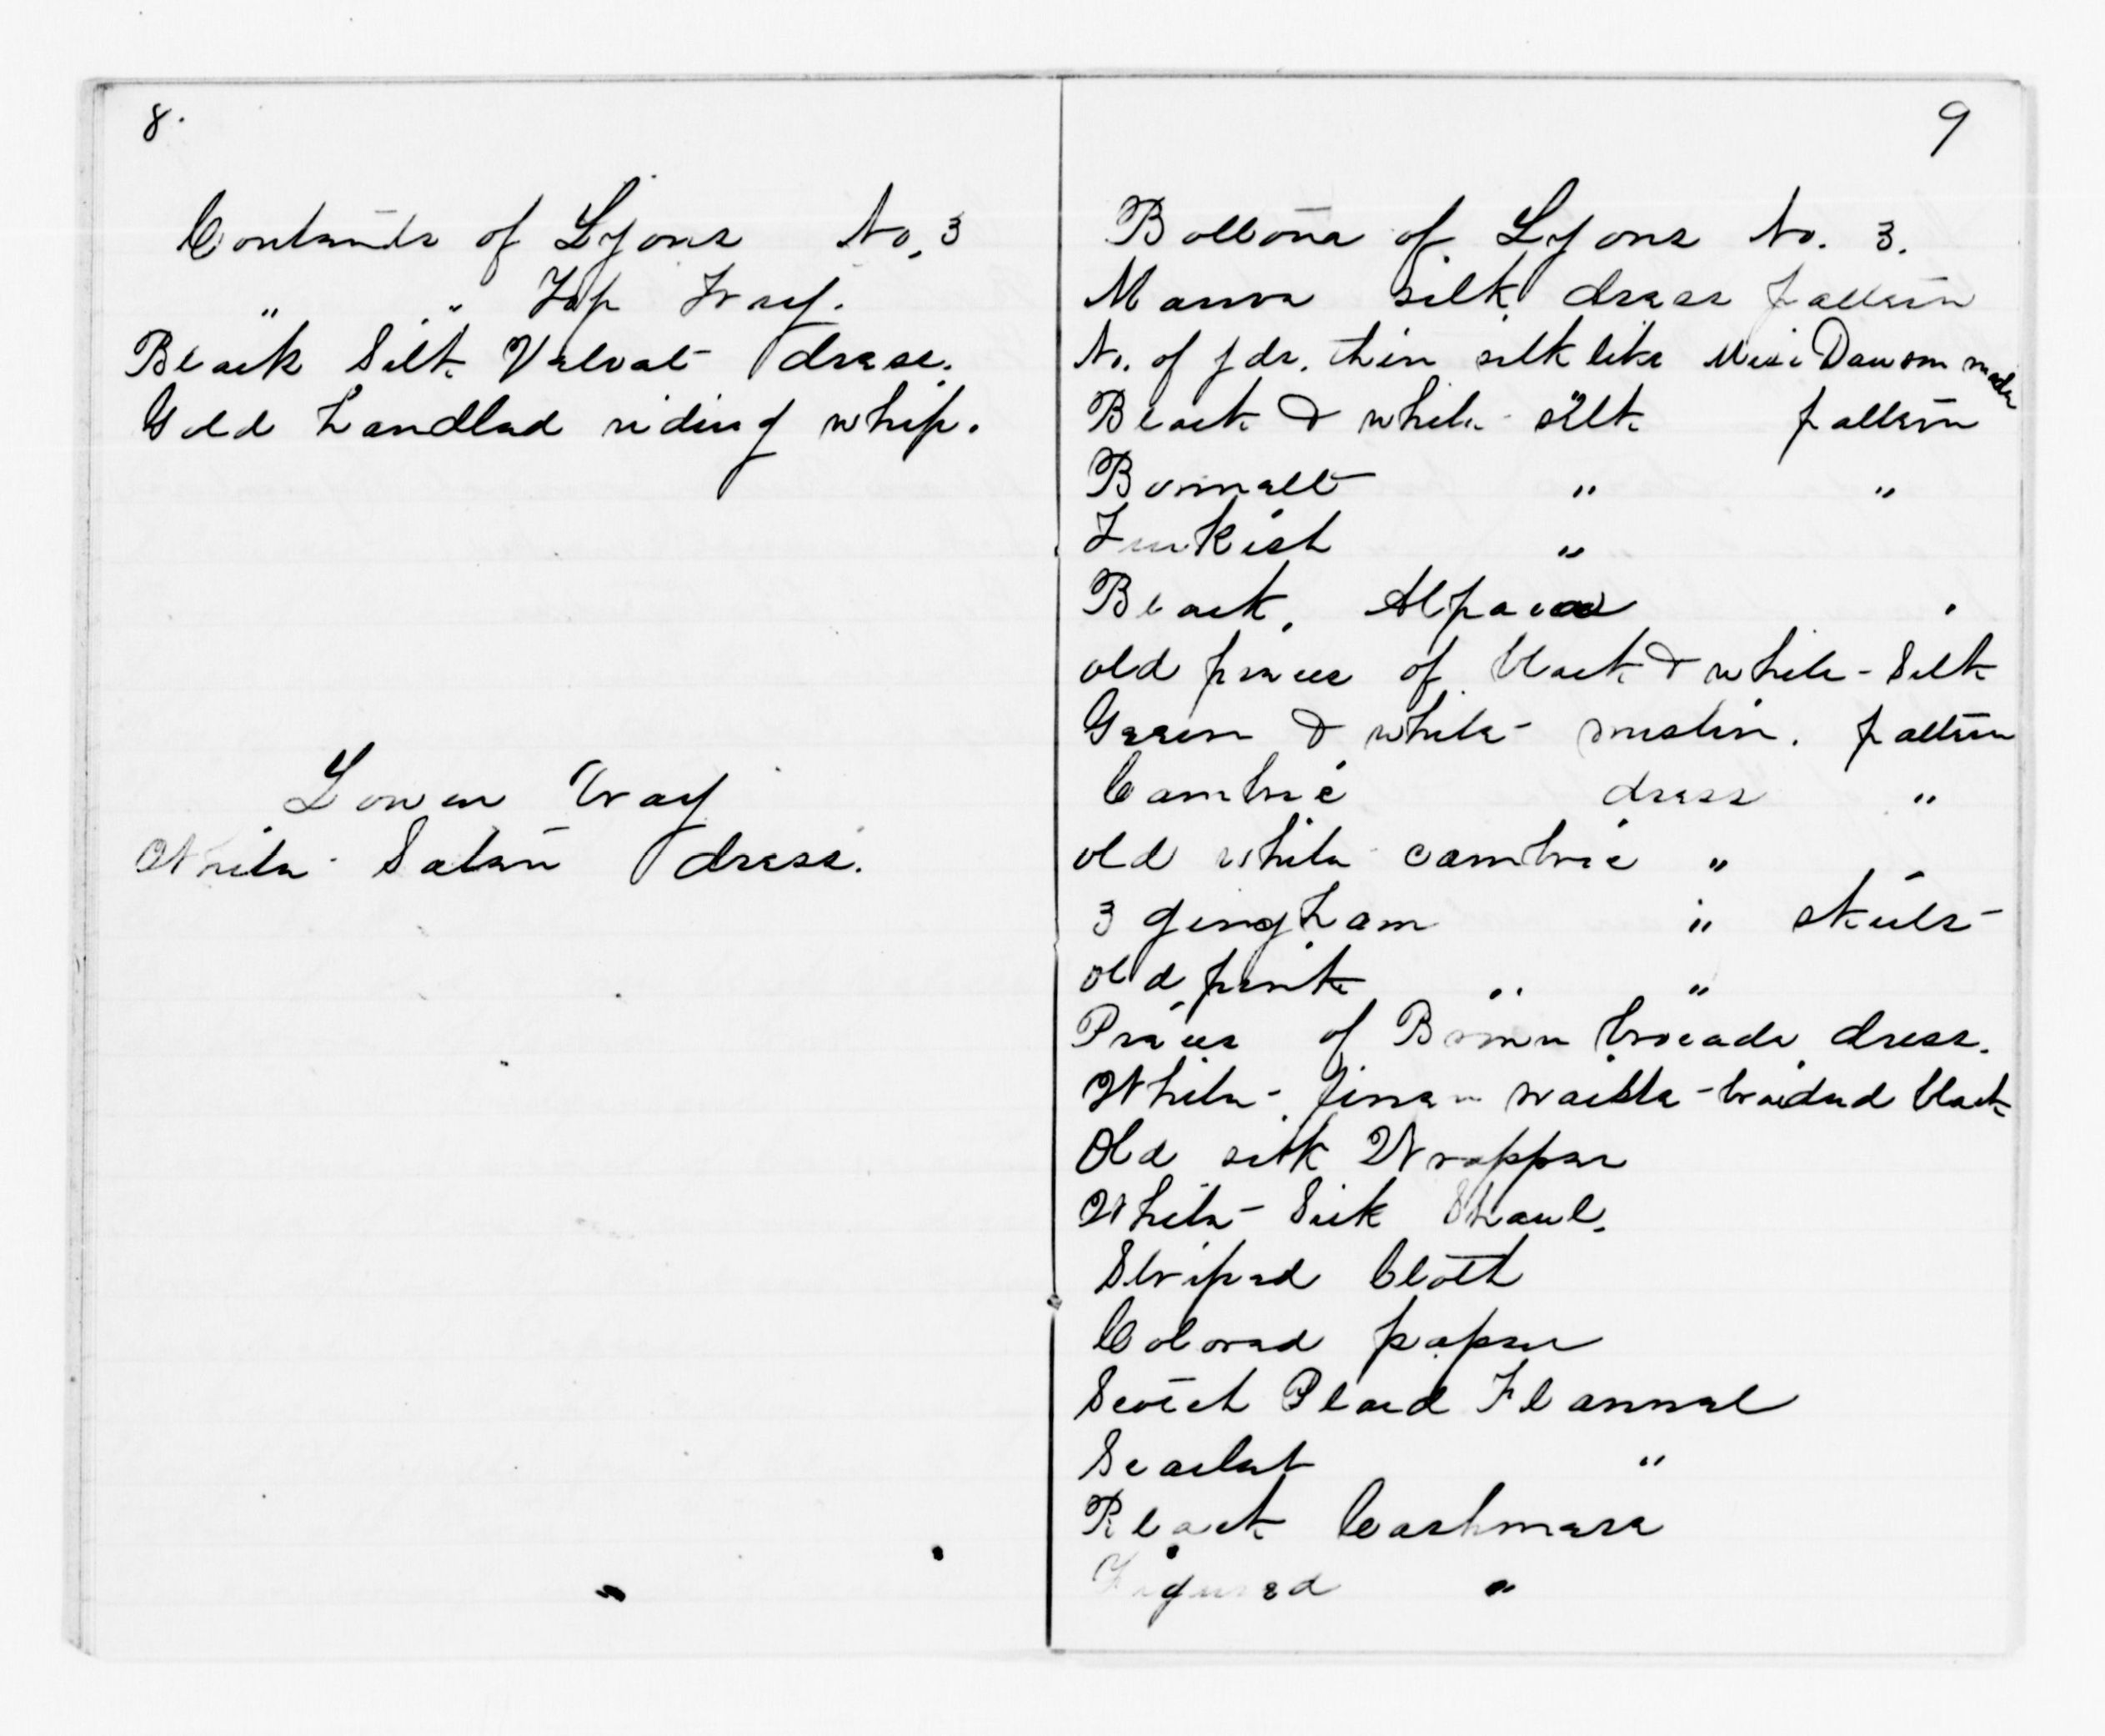 8.
Contents of Lyons No. 3
" " Top Tray.
Black Silk Velvet dress.
Gold handled riding whip.
Lower Tray
White Satin dress.
9
Bottom of Lyons No. 3.
Mauve silk dress pattern
No. of yds. thin silk like Miss Dawson made
Black & white silk pattern
" "
Turkish "
Black Alpaca "
old pieces of black & white Silk
Green & white muslin. pattern
Cambric dress "
old white cambric "
3 gingham " skirts
old pink " "
Pieces of Brown brocade dress.
White linen waists braided black
Old silk Wrapper
White Silk Shawl.
Striped Cloth
Colored paper
Scotch Plaid Flannel
Scarlet "
Black Cashmere
Figured "